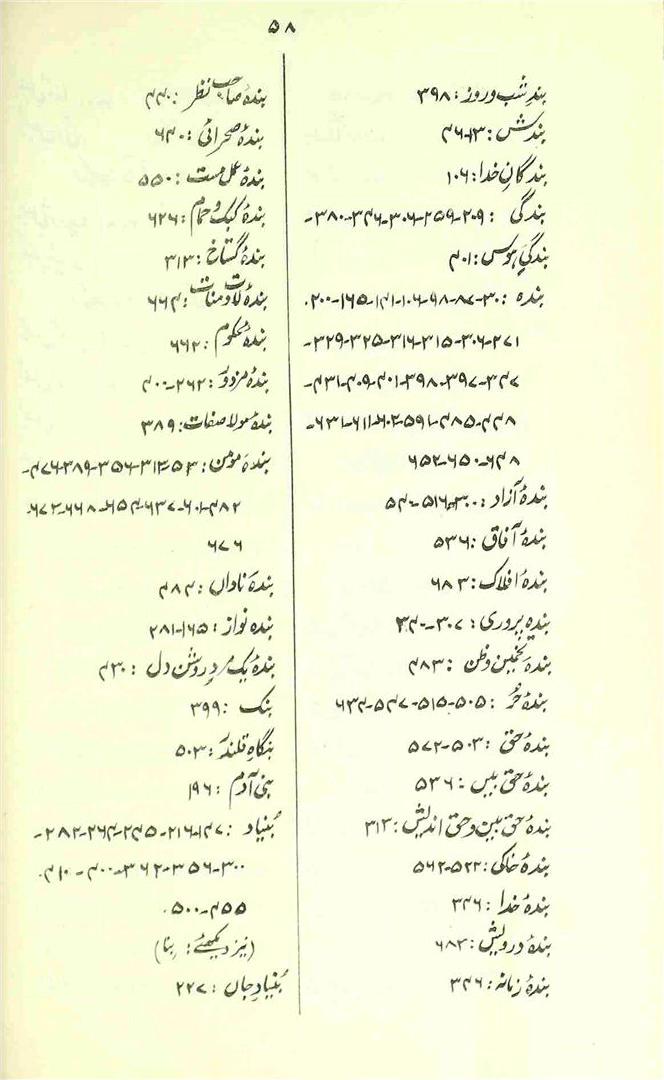 ۵۸
بندِ شب و روز: ۳۹۸
بندش: ۱۳-۴۶
بندگانِ خدا: ۱۰۶
بندگی: ۲۰۹-۲۵۹-۳۰۶-۳۴۶-۳۸۰-
بندگیِ ہوس: ۴۰۱
بندہ: ۳۰-۸۷-۹۸-۱۰۶-۱۴۱-۱۶۵-۲۰۰-
۲۷۱-۳۰۶-۳۱۵-۳۱۶-۳۲۵-۳۲۹-
۳۴۷-۳۹۷-۳۹۸-۴۰۱-۴۰۹-۴۳۱-
۴۴۸-۴۸۵-۵۹۱-۶۰۲-۶۱۱-۶۳۱-
۶۴۸-۶۵۰-۶۵۲
بندۂ آزاد: ۳۰۰-۵۱۶-۵۴۰
بندۂ آفاق: ۵۳۶
بندۂ افلاک: ۶۸۳
بندہ پروری: ۳۰۷-۳۴۰
بندۂ تخمین و ظن: ۴۸۳
بندۂ حُر: ۵۰۵-۵۱۵-۵۴۷-۶۳۴
بندۂ حق: ۵۰۳-۵۷۲
بندۂ حق بیں: ۵۳۶
بندۂ حق بین و حق اندیش: ۳۱۳
بندۂ خاکی: ۵۲۲-۵۶۲
بندۂ خدا: ۳۴۶
بندۂ درویش: ۶۸۳
بندۂ زمانہ: ۳۴۶
بندۂ صاحب نظر: ۴۴۰
بندۂ صحرائی: ۶۴۰
بندۂ عمل مست: ۵۵۰
بندۂ کبک و حمام: ۶۲۶
بندۂ گستاخ: ۳۱۳
بندۂ لات و منات: ۶۶۴
بندۂ محکوم: ۶۶۲
بندۂ مزدور: ۲۶۲-۴۰۰
بندۂ مولا صفات: ۳۸۹
بندۂ مومن: ۵۳-۳۱۲-۳۵۶-۳۸۹-۴۷۶-
۴۸۲-۶۰۱-۶۳۷-۶۵۴-۶۶۸-۶۷۳-
۶۷۶
بندۂ ناداں: ۴۸۴
بندہ نواز: ۱۶۵-۲۸۱
بندۂ یک مردِ روشن دل: ۴۳۰
بنک: ۳۹۹
بنگاہِ قلندر: ۵۰۳
بنی آدم: ۱۹۶
بُنیاد: ۱۴۷-۲۱۶-۲۴۵-۲۶۴-۲۸۲-
۳۰۰-۳۵۶-۳۶۲-۴۰۰-۴۱۰-
۴۵۵-۵۰۰-
(نیز دیکھئے: بِنا)
بُنیادِ جاں: ۲۲۷